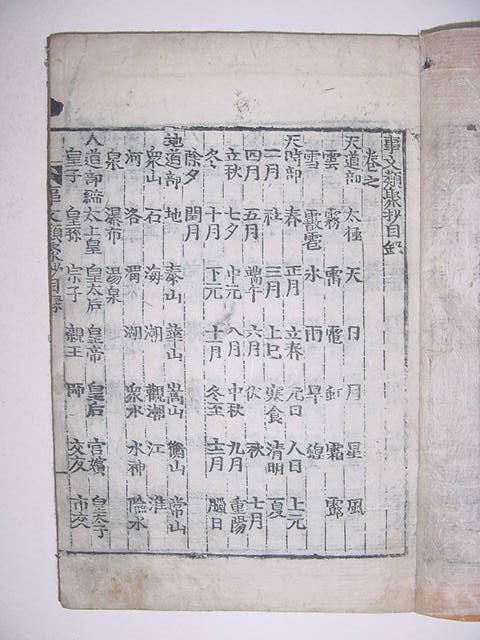 事文類聚抄目錄
卷之
天道部 太極 天 日 月 星 風
雲 霧 雷 電 虹 霜 露
雪 霰雹 氷 雨 旱
天時部 春 正月 立春 元日 人日 上元
二月 社 三月 上巳 寒食 清明 夏
四月 五月 端午 六月 伏 秋 七月
立秋 七夕 中元 八月 中秋 九月 重陽
冬 十月 下元 十一月 冬至 十二月 臘日
除夕 閏月
地道部 地 泰山 華山 嵩山 衡山 常山
衆山 石 海 潮 觀潮 江 淮
河 洛 渭 湖 衆水 水神
泉 瀑布 湯泉
人道部 太上皇 皇太后 皇帝 皇后 宮嬪 皇太子
皇子 皇孫 宗子 親王 師 交友 市交
事文類聚抄目錄